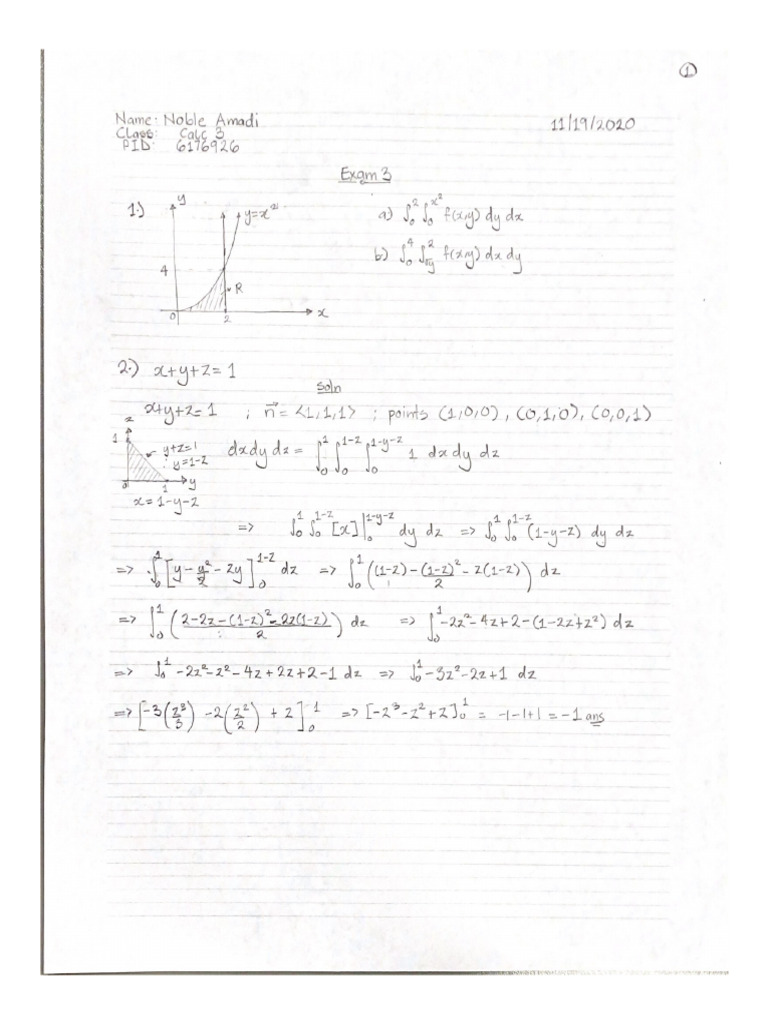 ①
Name: Noble Amadi 11/19/2020
Class: Calc 3
PID: 6176926
Exam 3
1.) y y=x² 4 R 0 2 x
a) ∫₀² ∫₀^{x²} f(x,y) dy dx
b) ∫₀⁴ ∫_{√y}² f(x,y) dx dy
2.) x+y+z=1
Soln
x+y+z=1 ; n⃗ = <1,1,1> ; points (1,0,0), (0,1,0), (0,0,1)
z 1 y+z=1 ∴ y=1-z 0 1 y
dxdydz = ∫₀¹ ∫₀^{1-z} ∫₀^{1-y-z} 1 dx dy dz
x=1-y-z
=> ∫₀¹ ∫₀^{1-z} [x]|₀^{1-y-z} dy dz => ∫₀¹ ∫₀^{1-z} (1-y-z) dy dz
=> ∫₀¹ [y - y²/2 - zy]₀^{1-z} dz => ∫₀¹ ((1-z) - (1-z)²/2 - z(1-z)) dz
=> ∫₀¹ (2-2z-(1-z)²-2z(1-z) / 2) dz => ∫₀¹ -2z²-4z+2-(1-2z+z²) dz
=> ∫₀¹ -2z²-z²-4z+2z+2-1 dz => ∫₀¹ -3z²-2z+1 dz
=> [-3(z³/3) -2(z²/2) + z]₀¹ => [-z³-z²+z]₀¹ = -1-1+1 = -1 ans